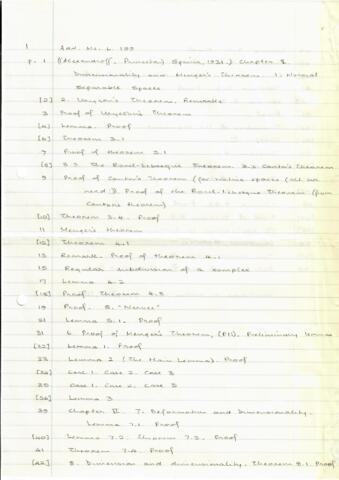 1 Add. Ms. L. 199
p. 1 (Alexandroff. Princeton) Spring, 1931.) Chapter I.
Dimensionality and Menger's Theorem. 1. Normal
Separable Spaces
[2] 2. Urysohn's Theorem. Remarks
3 Proof of Urysohn's Theorem
[4] Lemma. Proof
[6] Theorem 3.1
7 Proof of Theorem 3.1
[8] 3.2. The Borel-Lebesgue Theorem. 3.3 Cantor's Theorem
9 Proof of Cantor's Theorem (for metric spaces (all we
need)). Proof of the Borel-Lebesgue Theorem (from
Cantor's theorem)
[10] Theorem 3.4. Proof
11 Menger's theorem
[12] Theorem 4.1
13 Remark. Proof of theorem 4.1
15 Regular subdivision of a complex
17 Lemma 4.2
[18] Proof. Theorem 4.3
19 Proof. 5. "Nerves"
21 Lemma 5.1. Proof
21 6. Proof of Menger's Theorem, Preliminary lemmas
[22] Lemma 1. Proof
23 Lemma 2 (The Main Lemma). Proof
[24] Case 1. Case 2. Case 3
25 Case 1. Case 2. Case 3
[26] Lemma 3
39 Chapter II. 7. Deformation and Dimensionality.
Lemma 7.1. Proof
[40] Lemma 7.2. Theorem 7.3. Proof
41 Theorem 7.4. Proof
[42] 8. Dimension and dimensionality. Theorem 8.1. Proof